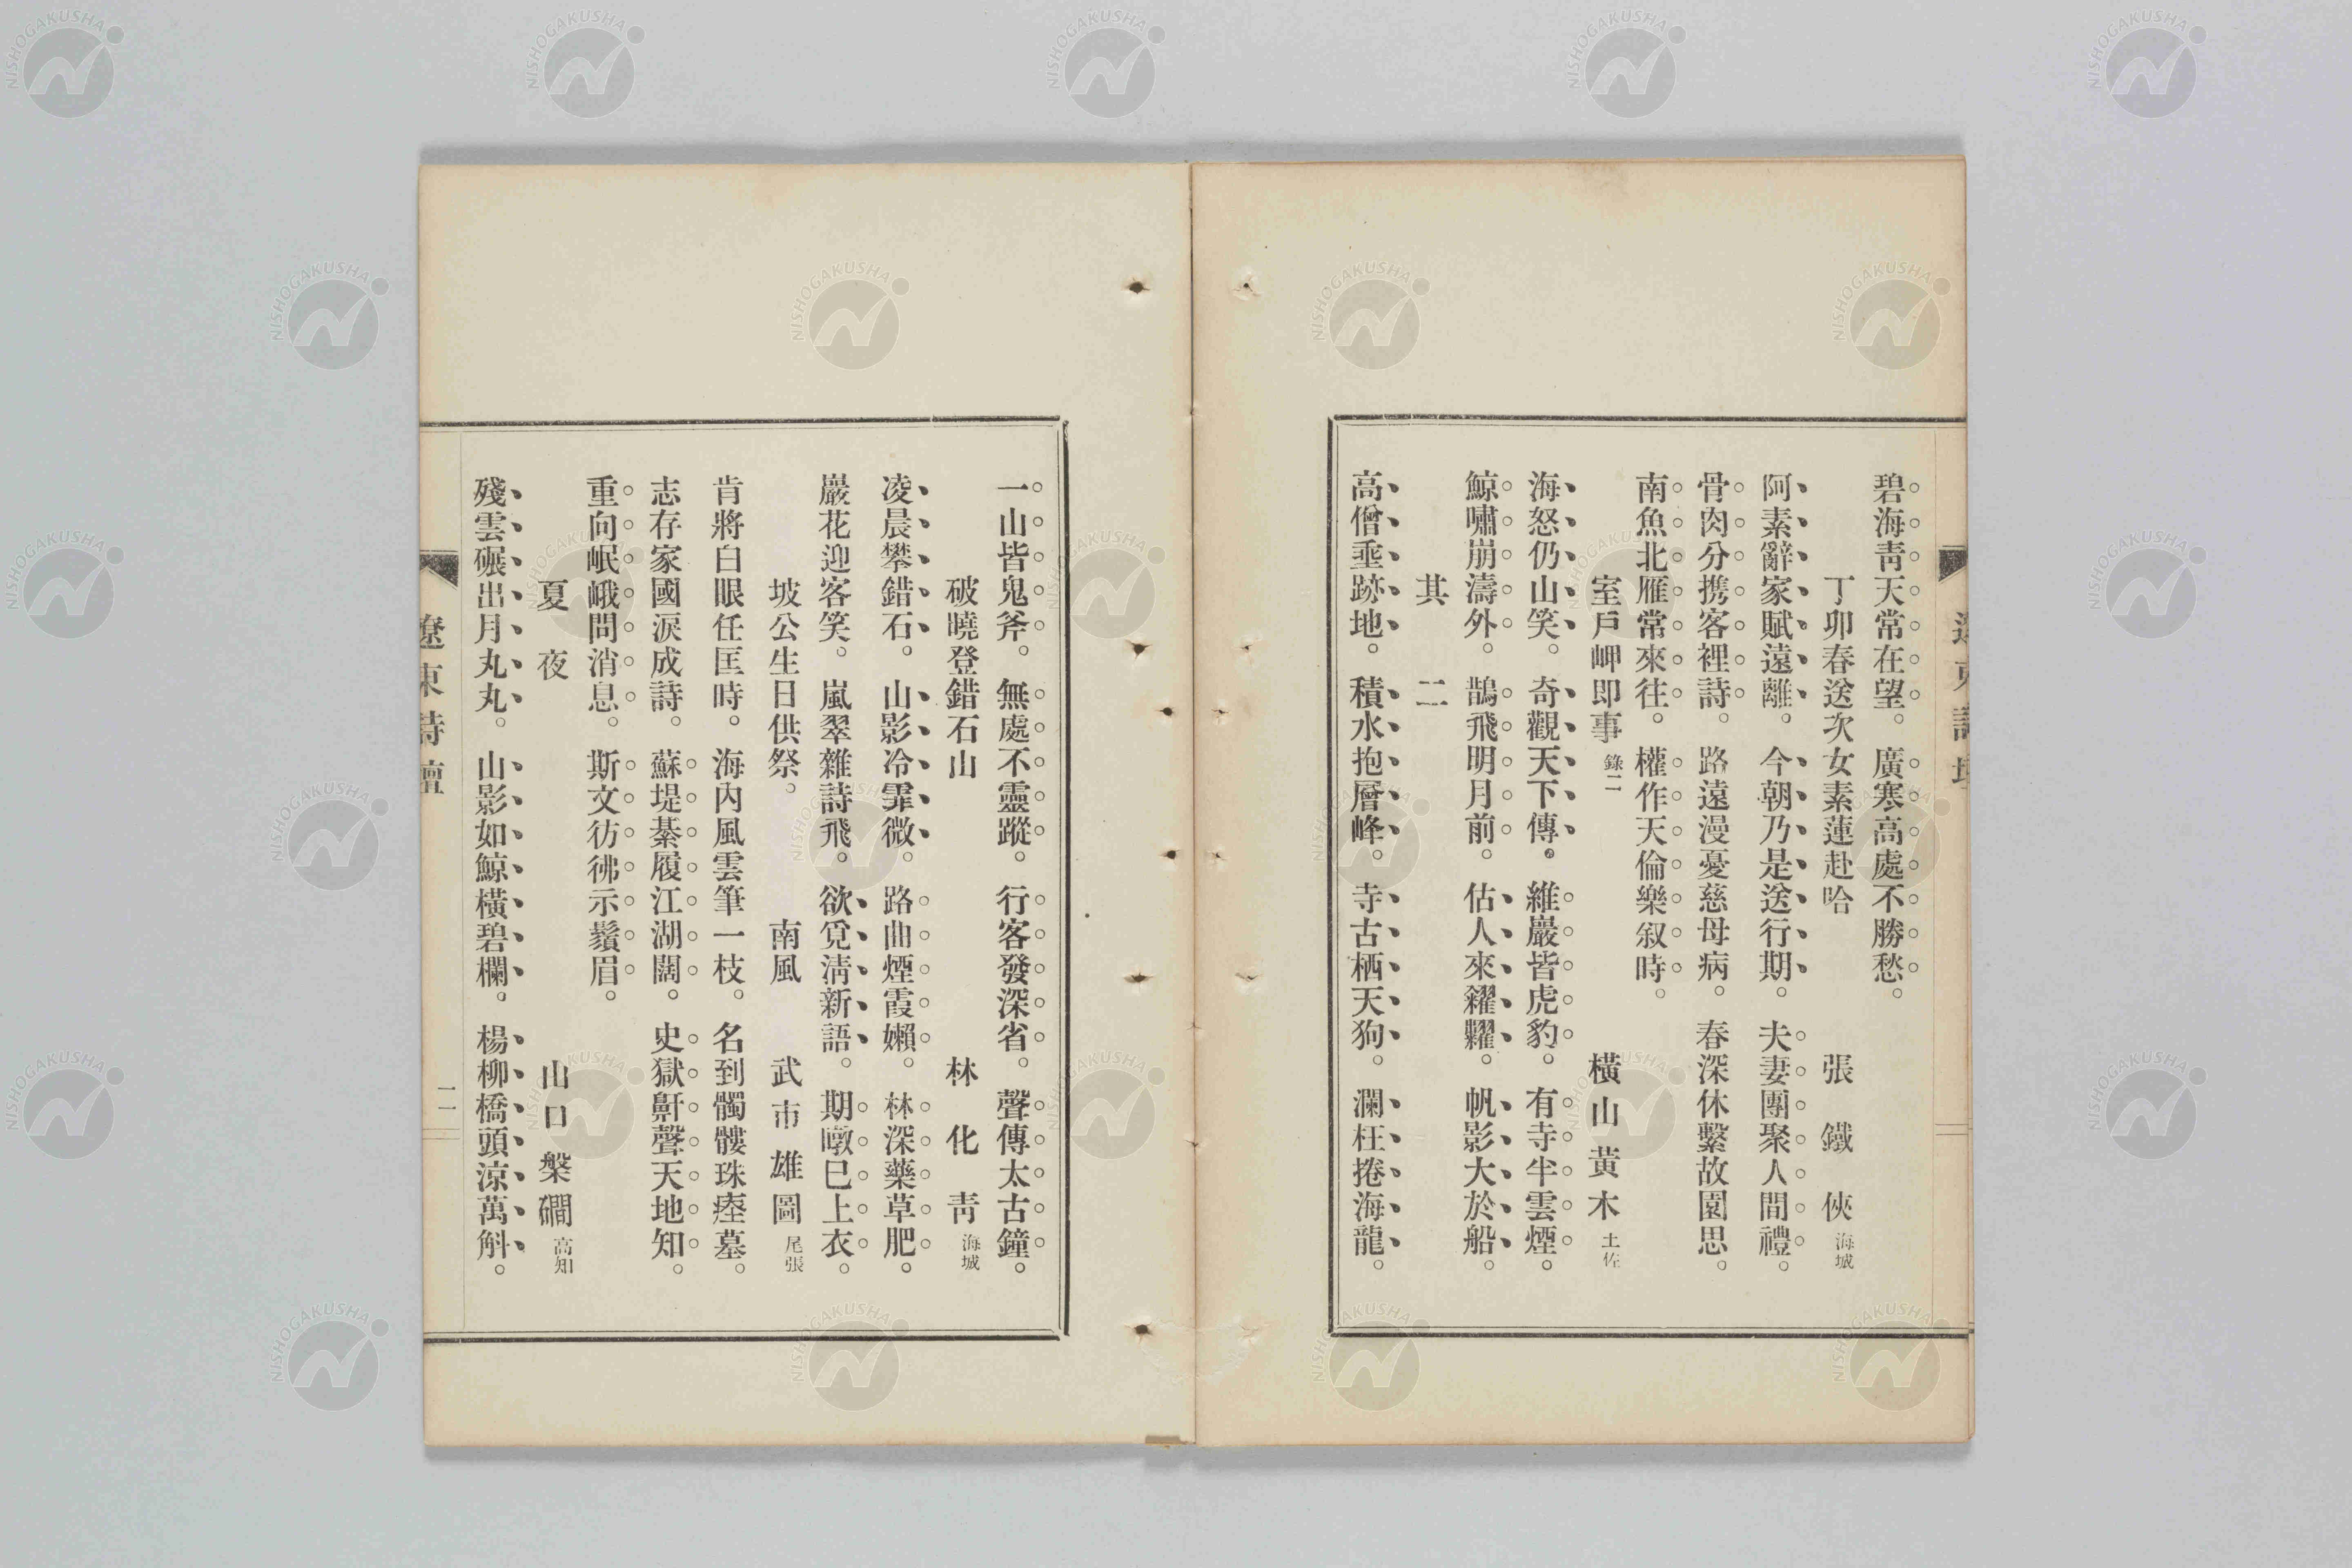 碧海靑天常在望。廣寒高處不勝愁。
丁卯春送次女素蓮赴哈　張鐵俠 海城
阿素辭家賦遠離。今朝乃是送行期。夫妻團聚人間禮。
骨肉分携客裡詩。路遠漫憂慈母病。春深休繫故園思。
南魚北雁常來往。權作天倫樂叙時。
室戶岬即事 錄二　橫山黃木 土佐
海怒仍山笑。奇觀天下傳。維巖皆虎豹。有寺半雲煙。
鯨嘯崩濤外。鵲飛明月前。估人來糴糶。帆影大於船。
其二
高僧垂跡地。積水抱層峰。寺古栖天狗。瀾枉捲海龍。
一山皆鬼斧。無處不靈蹤。行客發深省。聲傳太古鐘。
破曉登錯石山　林化靑 海城
凌晨攀錯石。山影冷霏微。路曲煙霞嬾。林深藥草肥。
巖花迎客笑。嵐翠雜詩飛。欲覓淸新語。期暾已上衣。
坡公生日供祭。南風　武市雄圖 尾張
肯將白眼任匡時。海內風雲筆一枝。名到髑髏珠瘞墓。
志存家國淚成詩。蘇堤綦履江湖闊。史獄鼾聲天地知。
重向岷峨問消息。斯文彷彿示鬚眉。
夏夜　山口槃礀 高知
殘雲碾出月丸丸。山影如鯨橫碧欄。楊柳橋頭涼萬斛。
遼東詩壇
一一